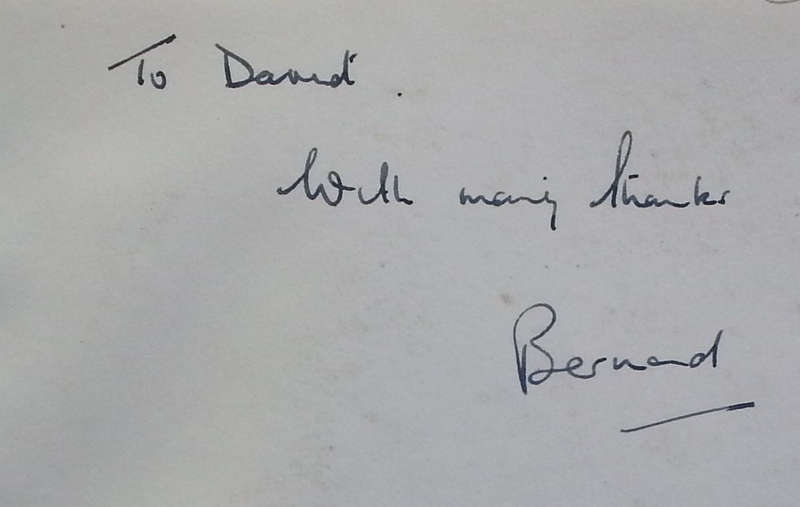 To David.
With many thanks
Bernard